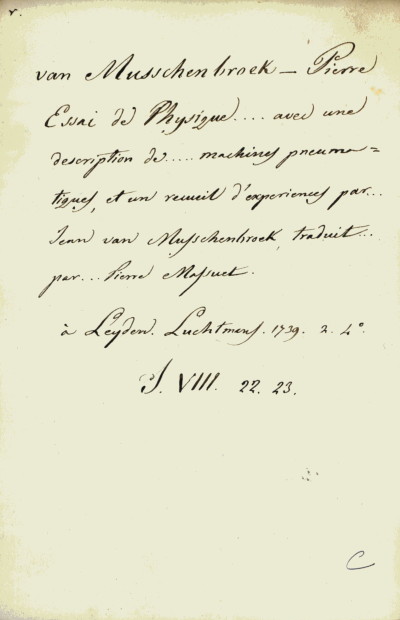 r.
van Musschenbroek — Pierre
Essai de Physique .... avec une
description de .... machines pneuma=
tiques, et un recueil d'experiences par...
Jean van Musschenbroek, traduit...
par... Pierre Massuet.
à Leyden. Luchtmens. 1739. 2. 4°.
J. VIII. 22. 23.
C